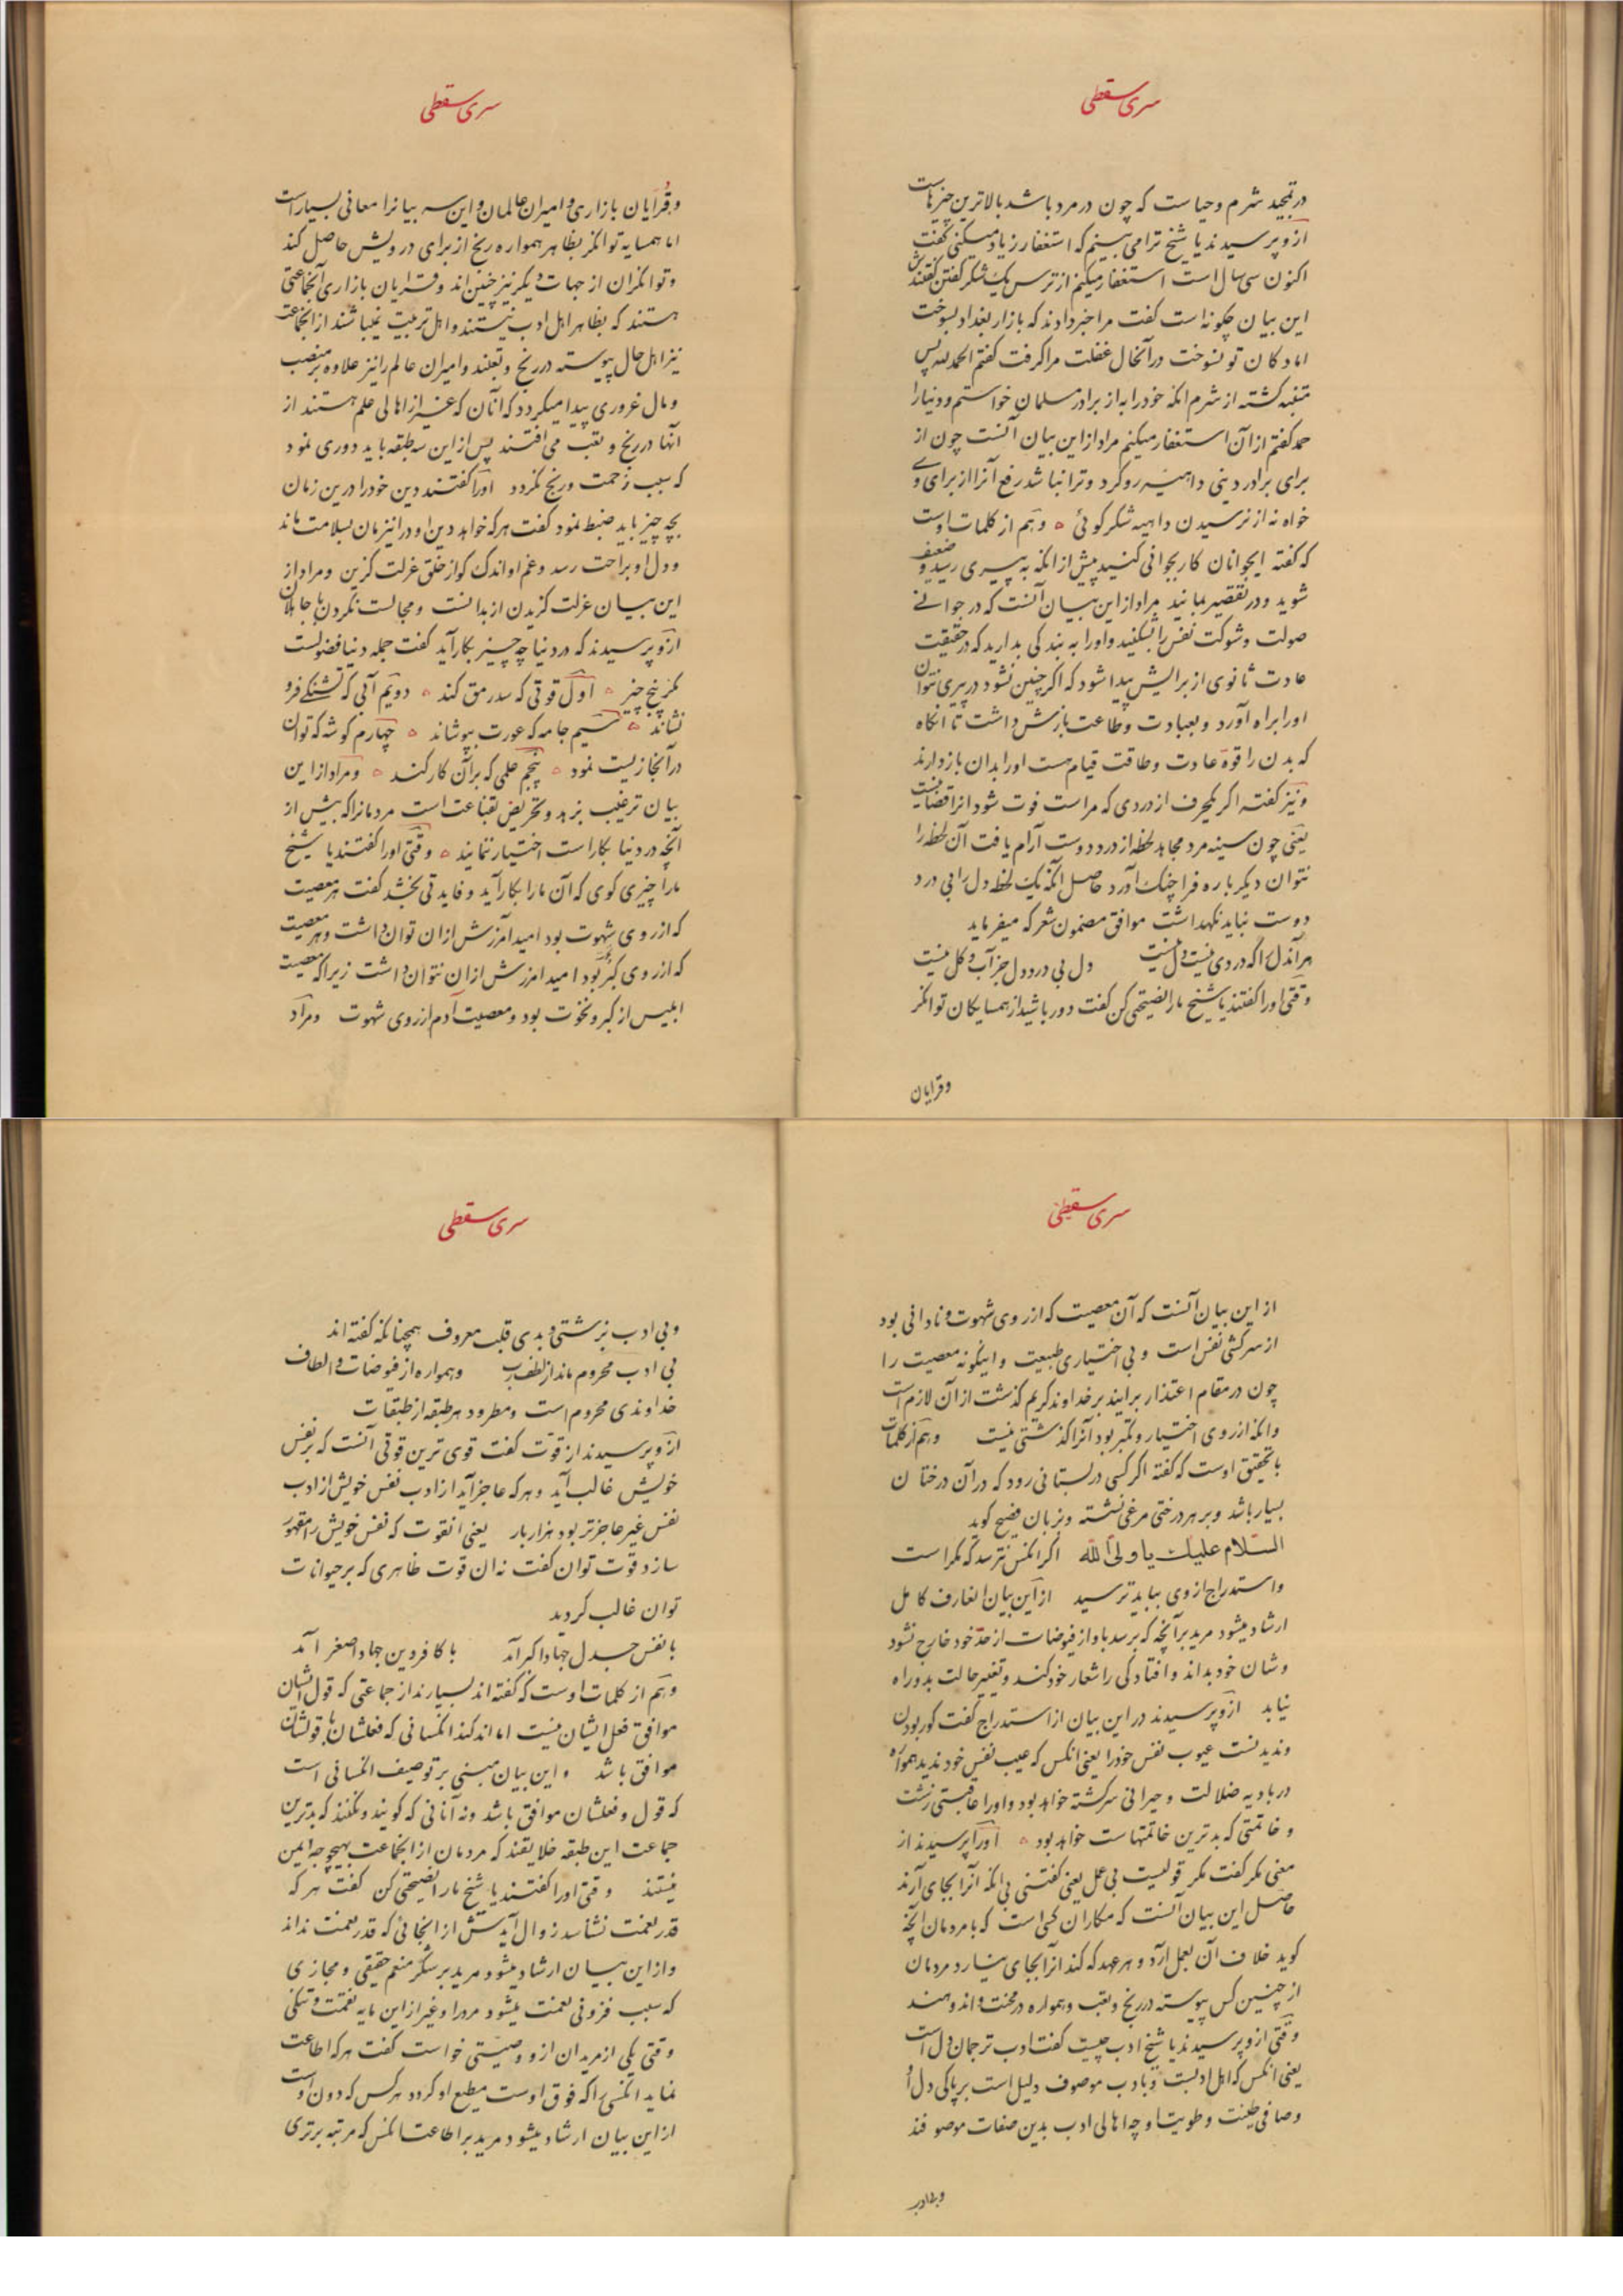 سری سقطی
در تمجید شرم و حیاست که چون در مرد باشد بالاترین چیزهاست
ازو پرسیدند یا شیخ ترا می بینم که استغفار زیاد میکنی گفت
اکنون سی سال است استغفار میکنم از ترس یک شکر گفتن گفتندش
این بیان چگونه است گفت مرا خبر دادند که بازار بغداد بسوخت
اما دکان تو نسوخت در آنحال غفلت مرا گرفت گفتم الحمد لله پس
متنبه گشته از شرم آنکه خود را به از برادر مسلمان خواستم و دنیا را
حمد گفتم از آن استغفار میکنم مراد از این بیان آنست چون از
برای برادر دینی داهیه روکرد و ترا نباشد رفع آنرا از برای وی
خواه نه از نرسیدن داهیه شکر گوئی و هم از کلمات اوست
که گفته ایجوانان کار بجوانی کنید پیش از آنکه به پیری رسید و ضعیف
شوید و در تقصیر بمانید مراد از این بیان آنست که در جوانی
صولت و شوکت نفس را بشکنید و اورا به بندگی بدارید که در حقیقت
عادت ثانوی از برایش پیدا شود که اگر چنین نشود در پیری نتوان
اورا براه آورد و بعبادت و طاعت بازش داشت تا آنگاه
که بدن را قوة عادت و طاقت قیام هست اورا بدان بازدارند
و نیز گفته اگر یکحرف از دردی که مراست فوت شود آنرا قضا نیست
یعنی چون سینه مرد مجاهد لحظه از درد دوست آرام یافت آن لحظه را
نتوان دیگرباره فراچنگ آورد حاصل آنکه یک لحظه دل را بی درد
دوست نباید نگهداشت موافق مضمون شعر که میفرماید
هر آندل را که دردی نیست دل نیست دل بی درد دل جز آب و گل نیست
وقتی اورا گفتند یا شیخ ما را نصیحتی کن گفت دور باشید از همسایگان توانگر
وقرایان
سری سقطی
و قرایان بازاری و امیران عالمان و این سه بیانرا معانی بسیار است
اما همسایه توانگر بظاهر همواره رنج از برای درویش حاصل کند
و توانگران از جهات دیگر نیز چنین اند و قرایان بازاری آنجماعتی
هستند که بظاهر اهل ادب نیستند و اهل تربیت نمیباشند از آنجماعت
نیز اهل حال پیوسته در رنج و تعبند و امیران عالم را نیز علاوه بر منصب
و مال غروری پیدا میگردد که آنان که غیر از اهالی علم هستند از
آنها در رنج و تعب می افتند پس از این سه طبقه باید دوری نمود
که سبب زحمت و رنج نگردد اورا گفتند دین خودرا درین زمان
بچه چیز باید ضبط نمود گفت هرکه خواهد دین او در اینزمان بسلامت ماند
و دل او براحت رسد و غم او اندک گو از خلق عزلت گزین و مراد از
این بیان عزلت گزیدن از بدانست و مجالست نکردن با جاهلان
ازو پرسیدند که در دنیا چه چیز بکار آید گفت جمله دنیا فضولست
مگر پنج چیز اول قوتی که سد رمق کند دویم آبی که تشنگی فرو
نشاند سیم جامه که عورت بپوشاند چهارم گوشه که توان
در آنجا زیست نمود پنجم علمی که بر آن کار کنند و مراد از این
بیان ترغیب بزهد و تحریض بقناعت است مردمانرا که بیش از
آنچه در دنیا بکار است اختیار ننمایند وقتی اورا گفتند یا شیخ
ما را چیزی گوی که آن ما را بکار آید و فایدتی بخشد گفت هر معصیت
که از روی شهوت بود امید آمرزش از آن توان داشت و هر معصیت
که از روی کبر بود امید آمرزش از آن نتوان داشت زیرا که معصیت
ابلیس از کبر و نخوت بود و معصیت آدم از روی شهوت و مراد
سری سقطی
از این بیان آنست که آن معصیت که از روی شهوت و نادانی بود
از سرکشی نفس است و بی اختیاری طبیعت و اینگونه معصیت را
چون در مقام اعتذار برایند بر خداوند کریم گذشت از آن لازم است
و آنکه از روی اختیار و تکبر بود آنرا گذشتی نیست و هم از کلمات
با تحقیق اوست که گفته اگر کسی در بستانی رود که در آن درختان
بسیار باشد و بر هر درختی مرغی نشسته و بزبان فصیح گوید
السلام علیک یا ولی الله اگر آنکس نترسد که مکر است
و استدراج از وی بباید ترسید از این بیان آنعارف کامل
ارشاد میشود مرید بر آنچه که برسد باو از فیوضات از حد خود خارج نشود
و شان خود بداند و افتادگی را شعار خود کند و تغییر حالت بدو راه
نیابد ازو پرسیدند در این بیان از استدراج گفت کور بودن
و ندیدنست عیوب نفس خود را یعنی آنکس که عیب نفس خود ندید همواره
در بادیه ضلالت و حیرانی سرگشته خواهد بود و اورا عاقبتی زشت
و خاتمتی که بدترین خاتمتهاست خواهد بود اورا پرسیدند از
معنی مکر گفت مکر قولیست بی عمل یعنی گفتنی بی آنکه آنرا بجای آرند
حاصل این بیان آنست که مکار آن کسی است که با مردمان آنچه
گوید خلاف آن بعمل آرد و هر عهد که کند آنرا بجای نیارد مردمان
از چنین کس پیوسته در رنج و تعب و همواره در محنت و اندوهند
وقتی ازو پرسیدند یا شیخ ادب چیست گفت ادب ترجمان دل است
یعنی آنکس که اهل ادبست و بادب موصوف دلیل است بر پاکی دل او
و صافی طینت و طویت او چه اهالی ادب بدین صفات موصوفند
و بی ادب
سری سقطی
و بی ادب بزشتی و بدی قلب معروف همچنانکه گفته اند
بی ادب محروم ماند از لطف رب و همواره از فیوضات و الطاف
خداوندی محروم است و مطرود هر طبقه از طبقات
ازو پرسیدند از قوت گفت قوی ترین قوتی آنست که بر نفس
خویش غالب آید و هرکه عاجز آید از ادب نفس خویش از ادب
نفس غیر عاجزتر بود هزار بار یعنی آنقوت که نفس خویش را مقهور
سازد قوت توان گفت نه آن قوت ظاهری که بر حیوانات
توان غالب گردید
با نفس جدل جهاد اکبر آمد با کافر دین جهاد اصغر آمد
و هم از کلمات اوست که گفته اند بسیارند از جماعتی که قول ایشان
موافق فعل ایشان نیست اما اندکند آنکسانی که فعلشان با قولشان
موافق باشد و این بیان مبنی بر توصیف آنکسانی است
که قول و فعلشان موافق باشد و نه آنانی که گویند و نکنند که بدترین
جماعت این طبقه خلایقند که مردمان از آنجماعت بهیچوجه ایمن
نیستند وقتی اورا گفتند یا شیخ ما را نصیحتی کن گفت هرکه
قدر نعمت نشناسد زوال آیدش از آنجائی که قدر نعمت نداند
و از این بیان ارشاد میشود مرید بر شکر منعم حقیقی و مجازی
که سبب فزونی نعمت میشود مر او را و غیر از این مایه نقمت و تنگی
وقتی یکی از مریدان ازو وصیتی خواست گفت هرکه اطاعت
نماید آنکسی را که فوق اوست مطیع او گردد هرکس که دون اوست
از این بیان ارشاد میشود مرید بر اطاعت آنکس که مرتبه برتری